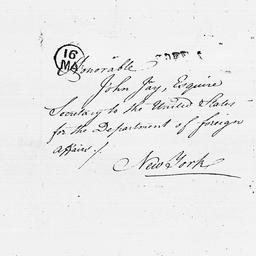 16
MA
Honorable
John Jay, Esquire
Secretary to the United States
for the Department of foreign
affairs /.
New York